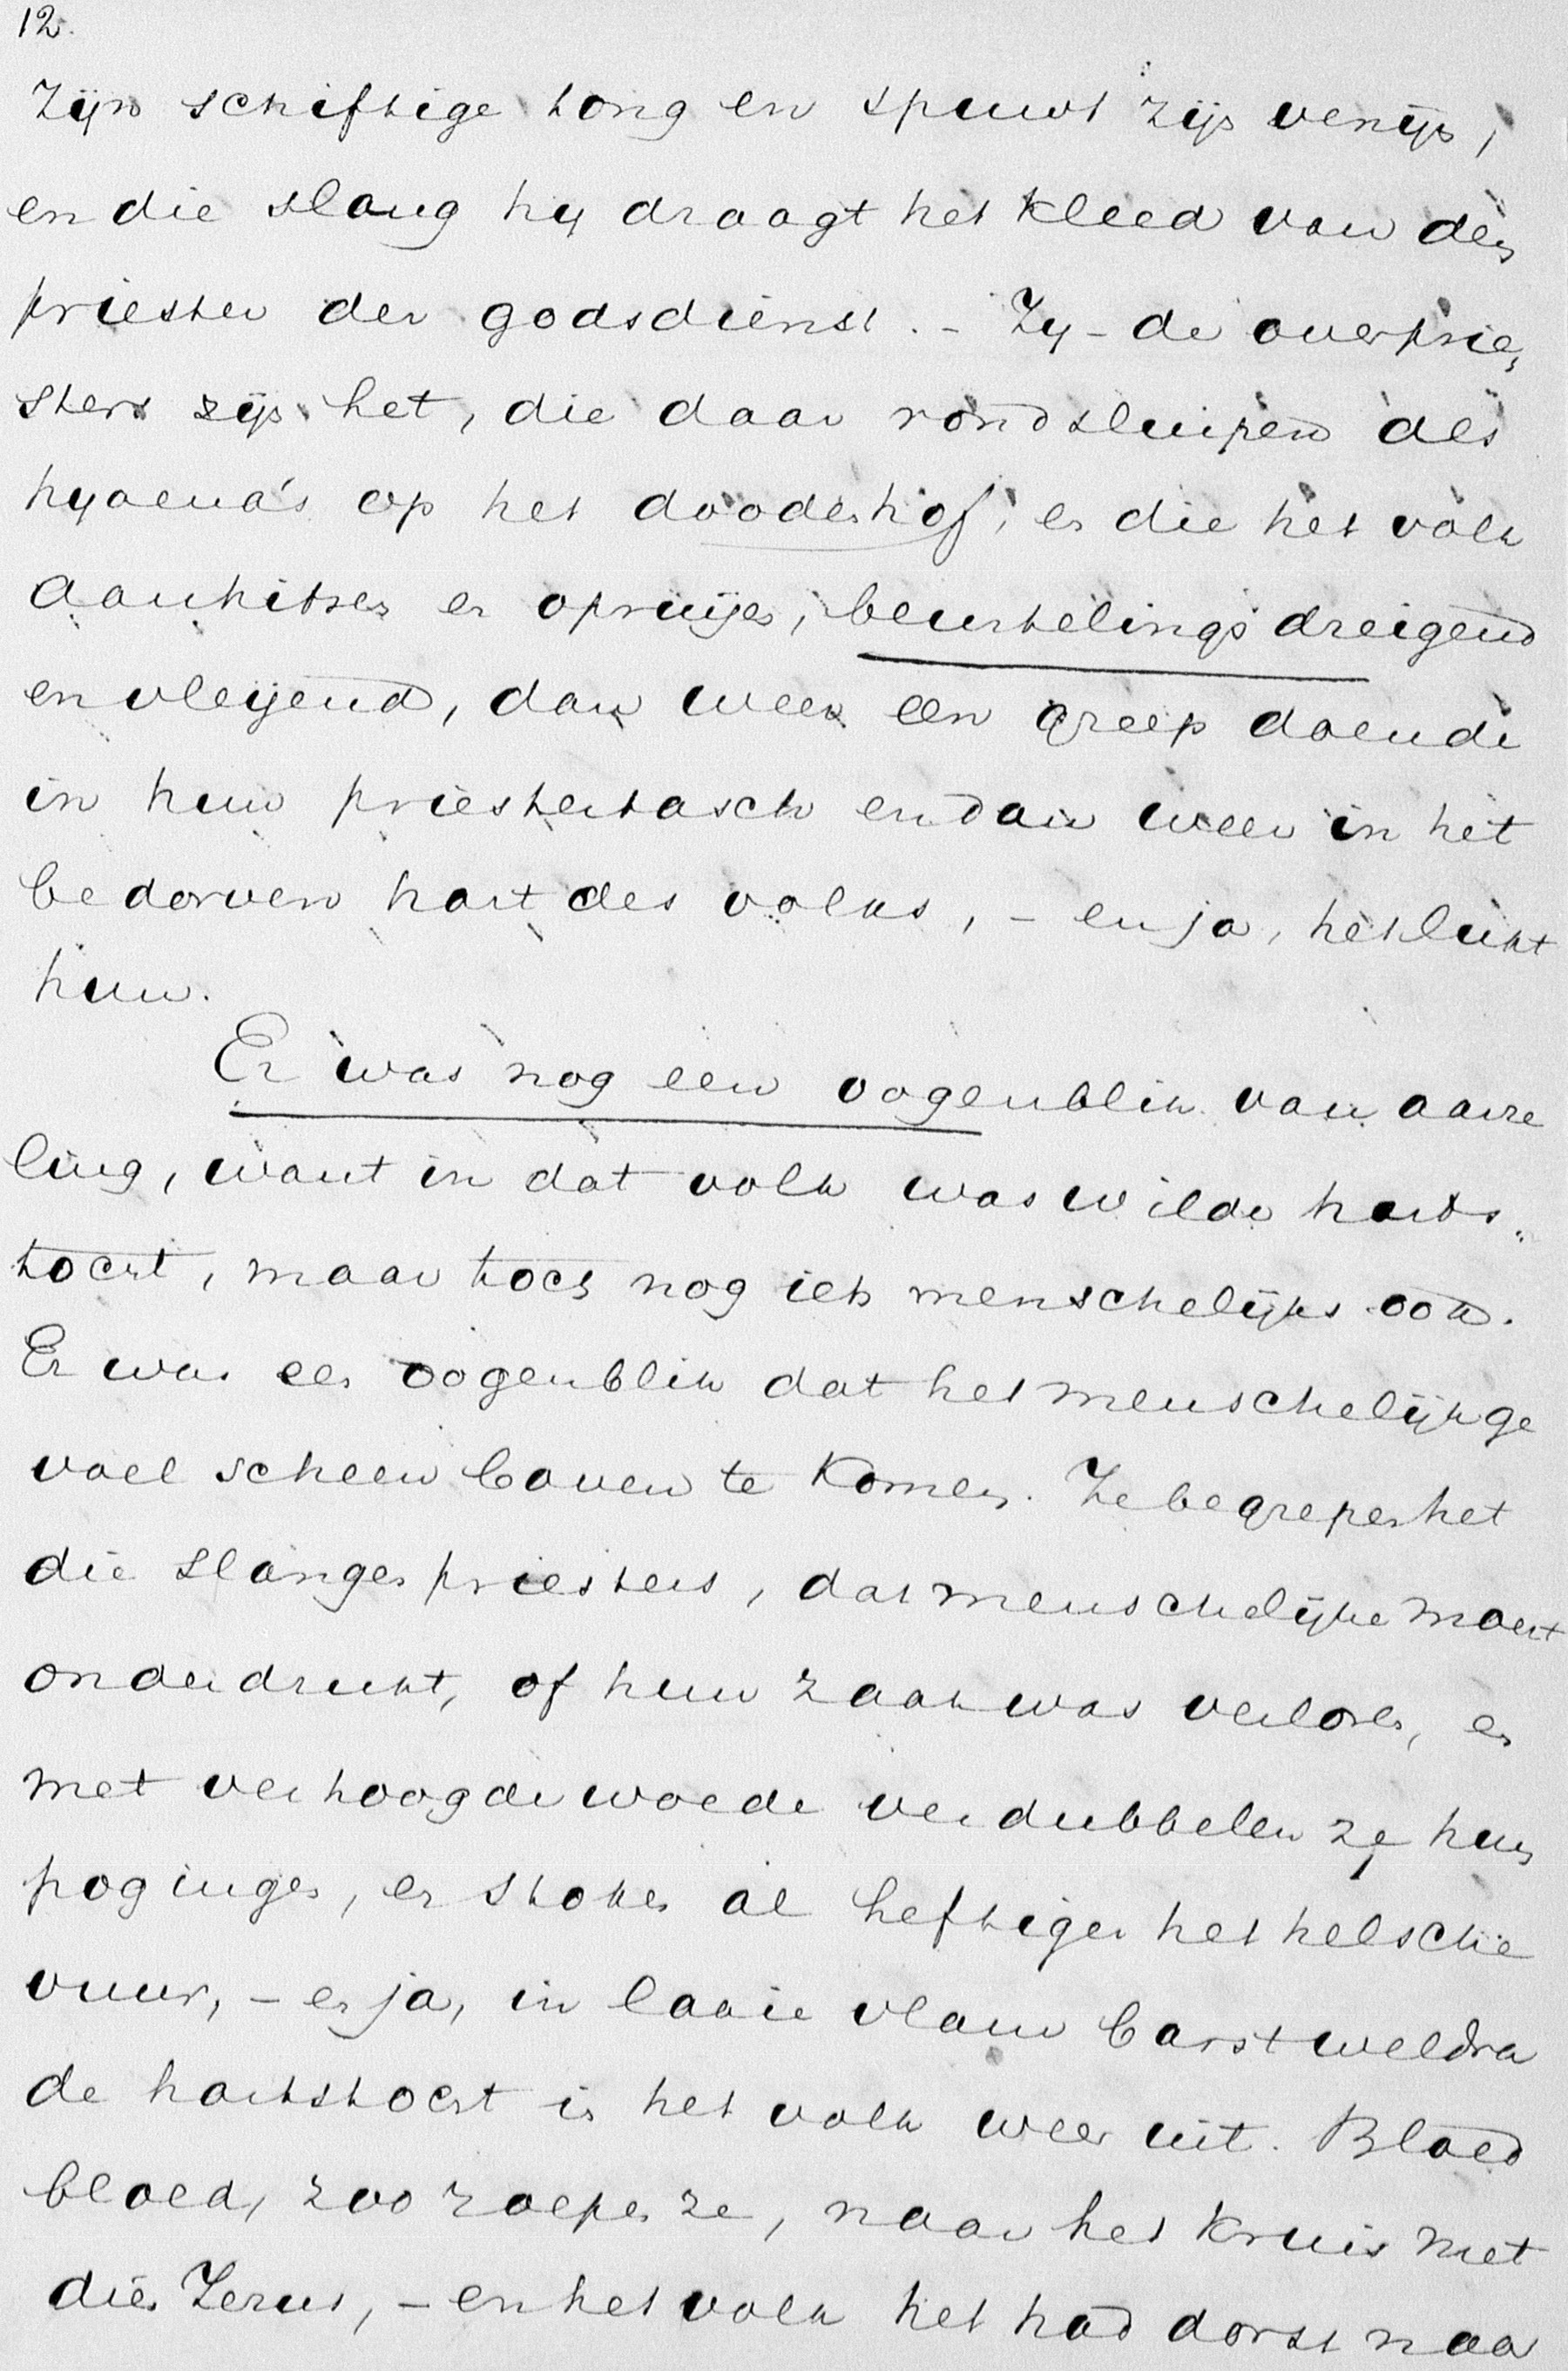 12.
zijn schiftige tong en spuwt zijn venijn,
en die slang hy draagt het kleed van den
priester der godsdienst. - Zy - de overprie„
sters zijn het, die daar rondsluipen als
hyaena's op het doodenhof, en die het volk
aanhitsen en opruijen, beurtelings dreigend
en vleijend, dan weer een greep doende
in hun priestertasch en dan weer in het
bedorven hart des volks, - en ja, het lukt
hun.
Er was nog een oogenblik van aarze
ling, want in dat volk was wilde harts„
tocht, maar toch nog iets menschelijks ook.
Er was een oogenblik dat het menschelijk ge
voel scheen boven te komen. Ze begrepen het
die slangenpriesters, dat menschelijke moest
onderdrukt, of hun zaak was verloren, en
met verhoogde woede verdubbelen ze hun
pogingen, en stoken al heftiger het helsche
vuur, - en ja, in laaie vlam barst weldra
de hartstocht in het volk weer uit. Bloed
bloed, zoo roepen ze, naar het kruis met
dien Jezus, - en het volk het had dorst naar